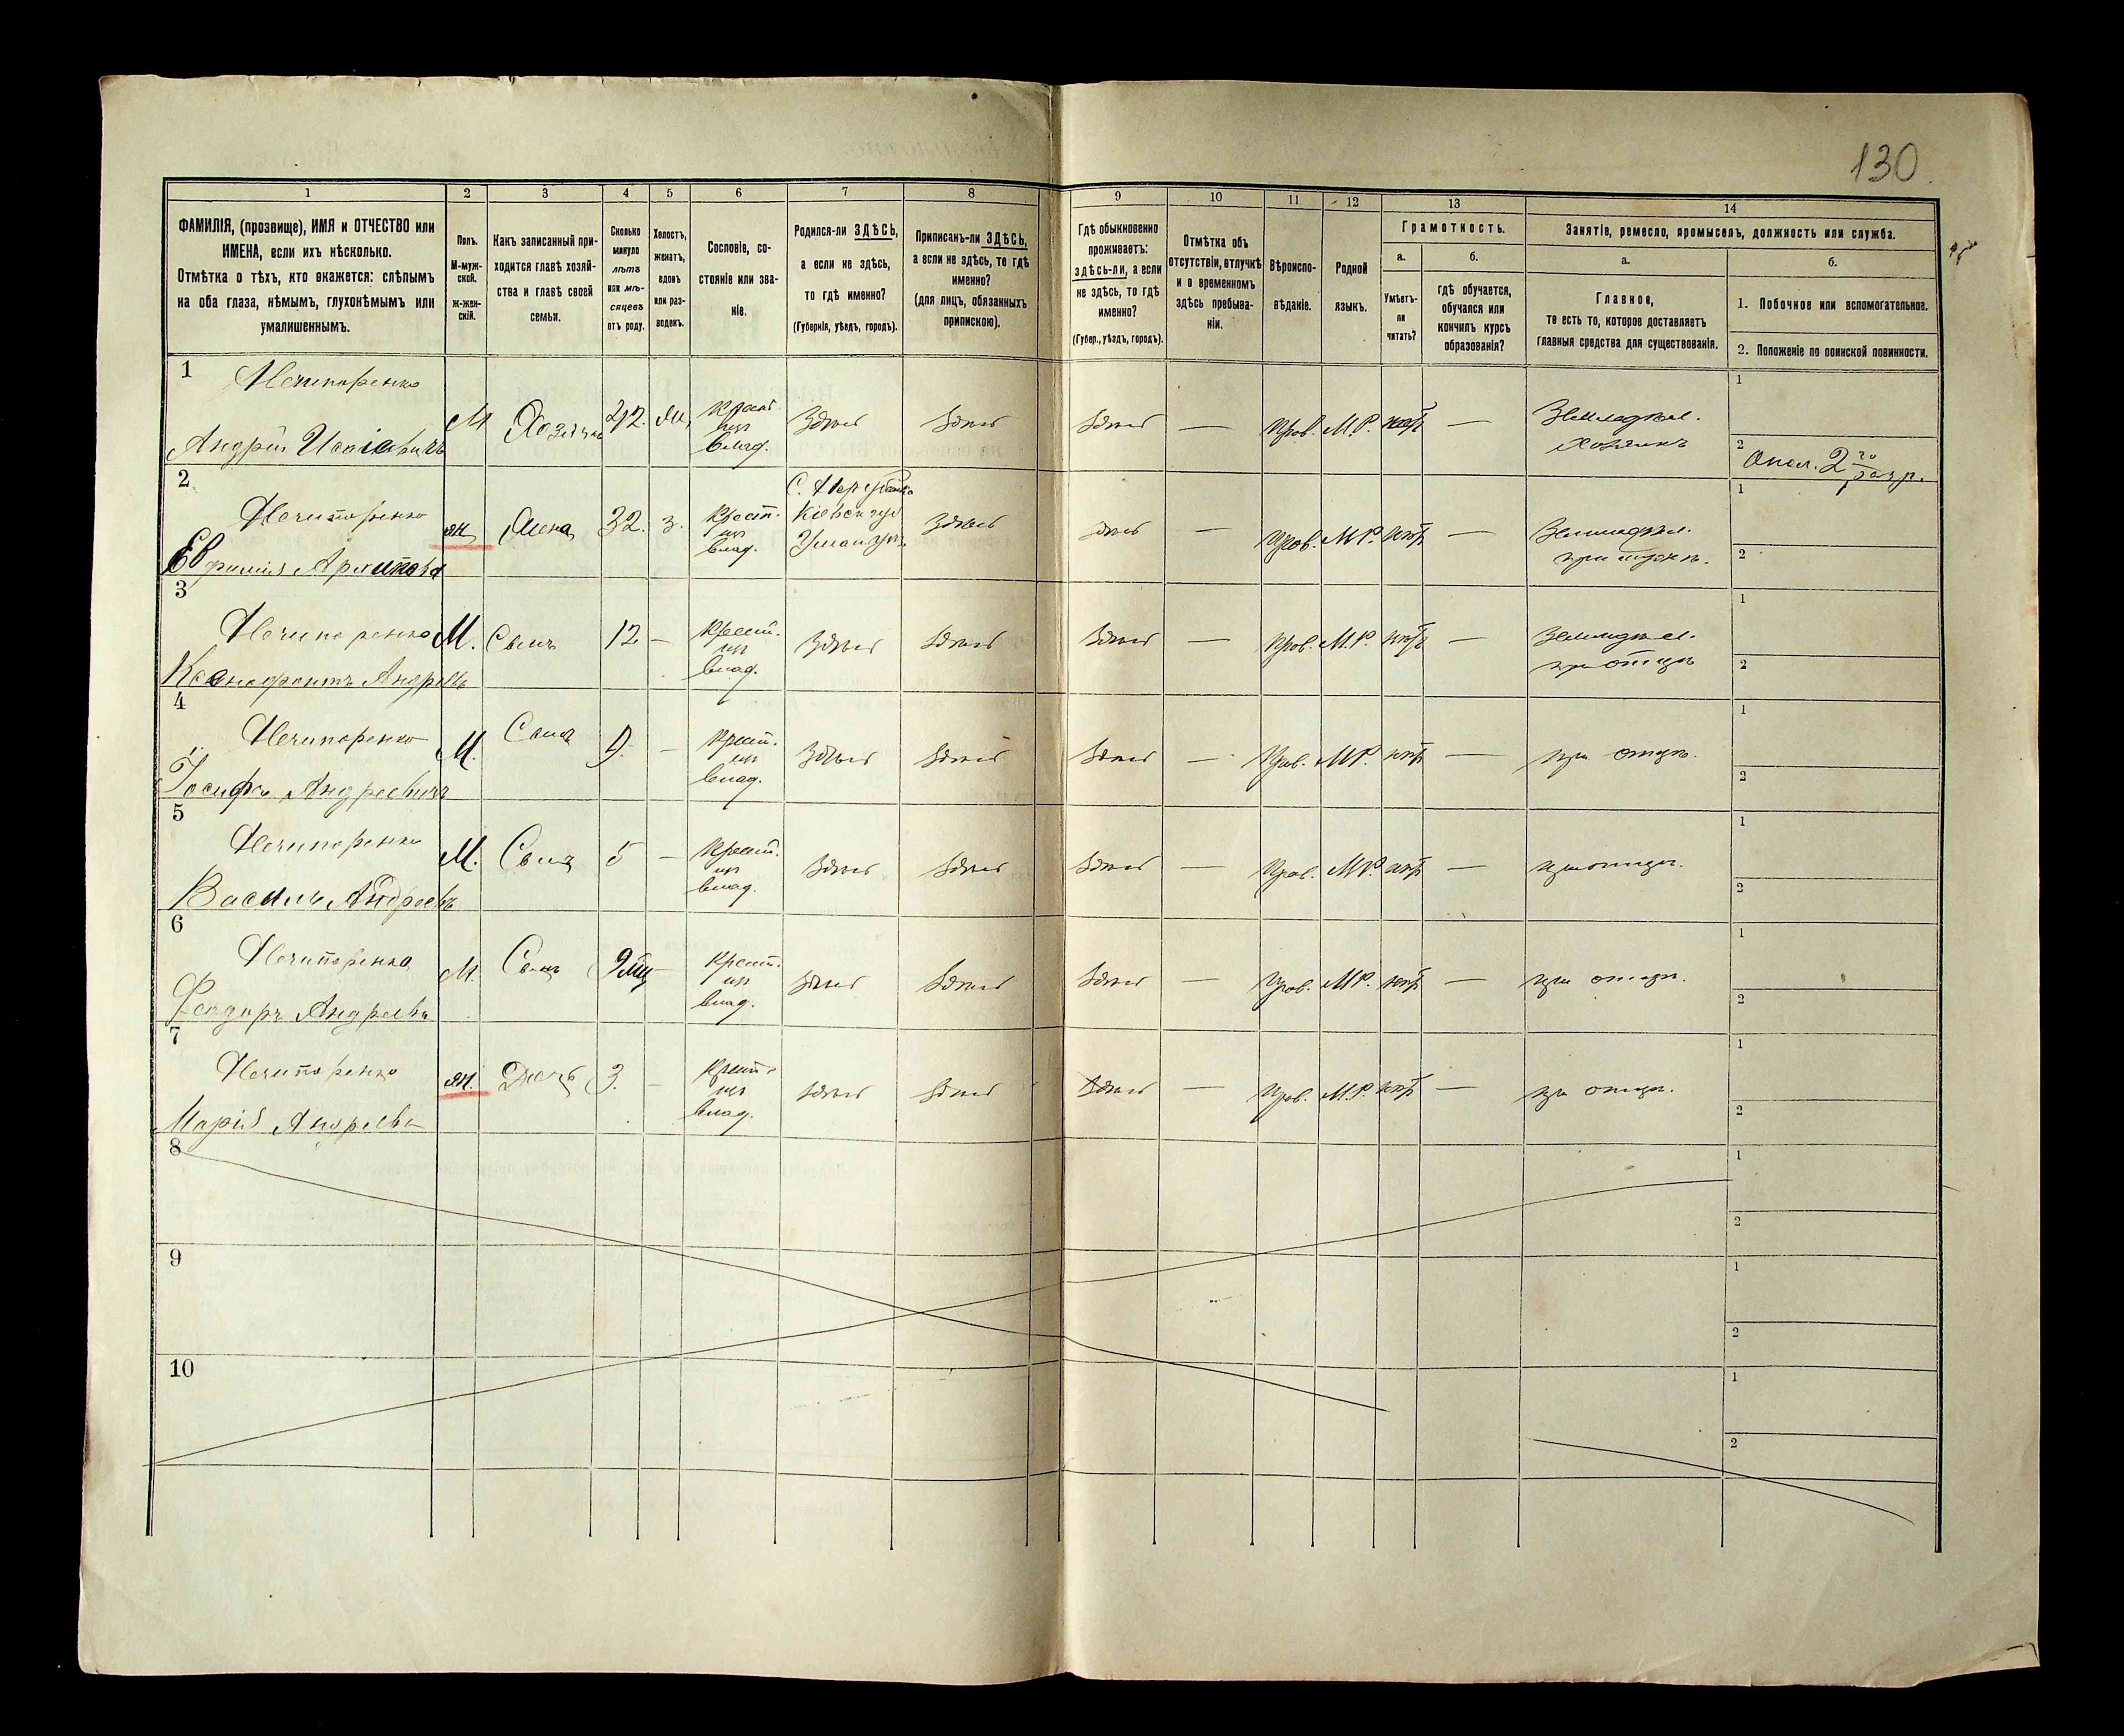 130
1 2 3 4 5 6 7 8 9 10 11 12 13 14
ФАМИЛІЯ, (прозвище), ИМЯ и ОТЧЕСТВО или
ИМЕНА, если ихъ нѣсколько.
Отмѣтка о тѣхъ, кто окажется: слѣпымъ
на оба глаза, нѣмымъ, глухонѣмымъ или
умалишеннымъ.
Полъ.
М-муж-
ской.
ж-жен-
скій.
Какъ записанный при-
ходится главѣ хозяй-
ства и главѣ своей
семьи.
Сколько
минуло
лѣтъ
или мѣ-
сяцевъ
отъ роду.
Холостъ,
женатъ,
вдовъ
или раз-
веденъ.
Сословіе, со-
стояніе или зва-
ніе.
Родился-ли ЗДѢСЬ,
а если не здѣсь,
то гдѣ именно?
(Губернія, уѣздъ, городъ).
Приписанъ-ли ЗДѢСЬ,
а если не здѣсь, то гдѣ
именно?
(для лицъ, обязанныхъ
припискою).
Гдѣ обыкновенно
проживаетъ:
здѣсь-ли, а если
не здѣсь, то гдѣ
именно?
(Губер., уѣздъ, городъ).
Отмѣтка объ
отсутствіи, отлучкѣ
и о временномъ
здѣсь пребыва-
ніи.
Вѣроиспо-
вѣданіе.
Родной
языкъ.
Грамотность.
а.
Умѣетъ-
ли
читать?
б.
гдѣ обучается,
обучался или
кончилъ курсъ
образованія?
Занятіе, ремесло, промыселъ, должность или служба.
а.
Главное,
то есть то, которое доставляетъ
главныя средства для существованія.
б.
1. Побочное или вспомогательное.
2. Положеніе по воинской повинности.
1 Нечипоренко
Андрѣй
М Хозяинъ
Крест.
изъ
влад.
Здѣсь Здѣсь Здѣсь — Прав. М.Р. нѣтъ — Земледѣл.
Хозяинъ
1
2 Опол. 2го разр.
2 Нечипоренко
Ж Жена 32. З.
Крест.
изъ
влад.
Здѣсь здѣсь — Прав. М.Р. нѣтъ — Земледѣл.
при мужѣ.
1
2
3 Нечипоренко
М. Сынъ 12 —
Крест.
изъ
влад.
Здѣсь Здѣсь Здѣсь — Прав. М.Р. нѣтъ — Земледѣл.
при отцѣ
1
2
4 Нечипоренко
Іосифъ Андреевичъ
М. Сынъ —
Крест.
изъ
влад.
Здѣсь Здѣсь Здѣсь — Прав. М.Р. нѣтъ — при отцѣ.
1
2
5 Нечипоренко
М. Сынъ 5 —
Крест.
изъ
влад.
Здѣсь Здѣсь Здѣсь — Прав. М.Р. нѣтъ — при отцѣ.
1
2
6 Нечипоренко
М. Сынъ —
Крест.
изъ
влад.
Здѣсь Здѣсь Здѣсь — Прав. М.Р. нѣтъ — при отцѣ.
1
2
7 Нечипоренко
Марія
Ж. Дочь 3. —
Крест.
изъ
влад.
Здѣсь Здѣсь Здѣсь — Прав. М.Р. нѣтъ — при отцѣ.
1
2
8
1
2
9
1
2
10
1
2